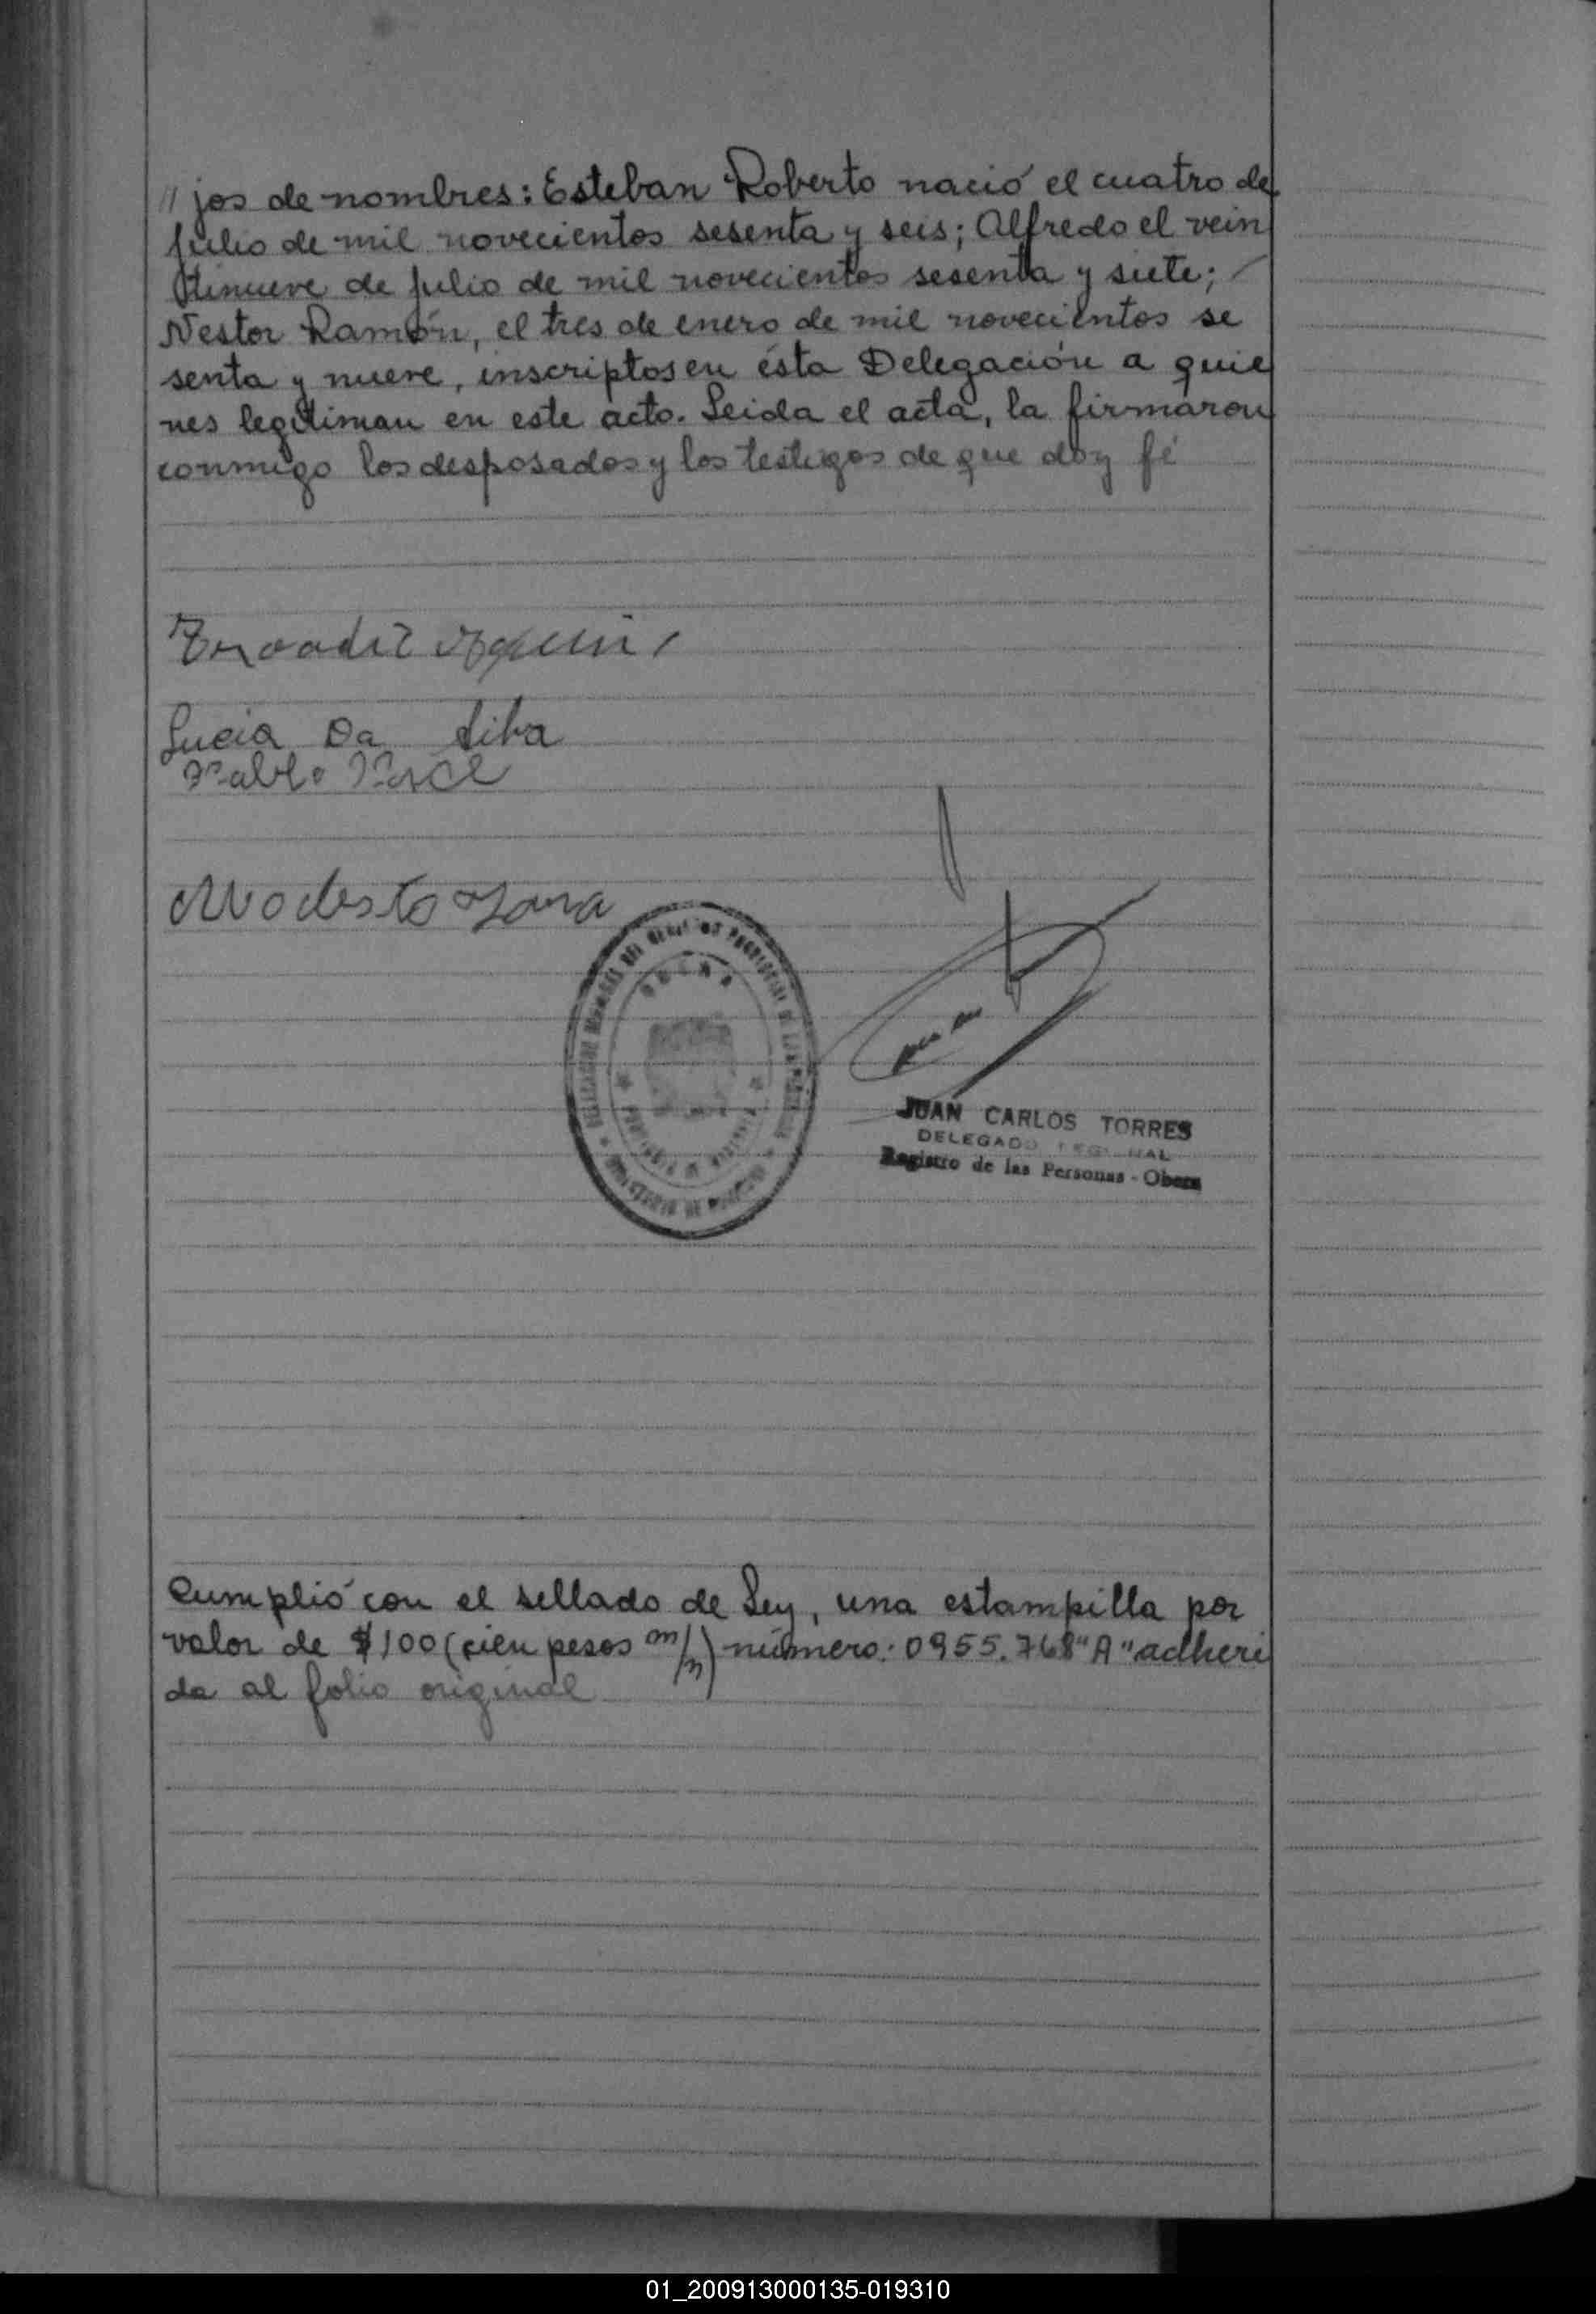 // jos de nombres: Esteban Roberto nació el cuatro de
julio de mil novecientos sesenta y seis; Alfredo el vein
tinueve de julio de mil novecientos sesenta y siete; /
Nestor Ramón, el tres de enero de mil novecientos se
senta y nueve, inscriptos en ésta Delegación a quie
nes legitiman en este acto. Leida el acta, la firmaron
conmigo los desposados y los testigos de que doy fé
Lucia Da Silva
Pablo
Modesto
JUAN CARLOS TORRES
DELEGADO REGIONAL
Registro de las Personas - Obera
Cumplió con el sellado de Ley, una estampilla por
valor de $100 (cien pesos m/n) número: 0955.768 "A" adheri
da al folio original
01_200913000135-019310